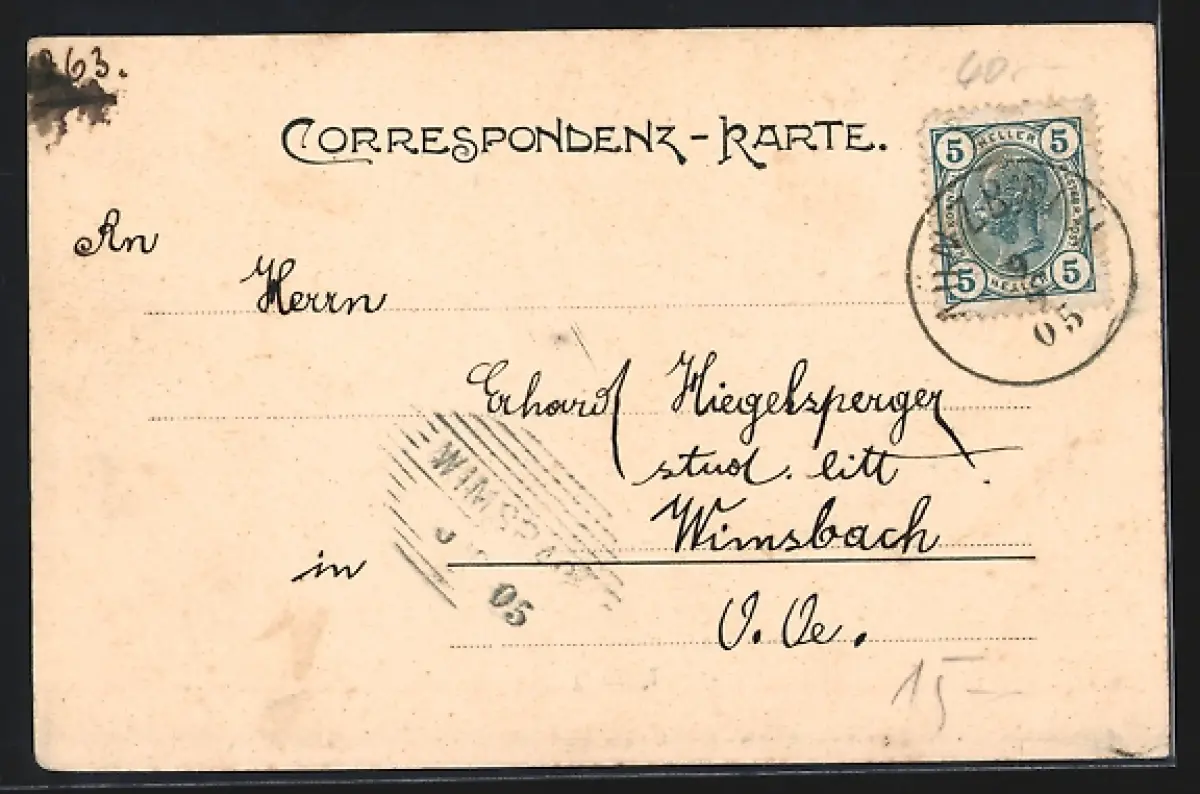 263.
40.-
CORRESPONDENZ-KARTE.
5 HELLER 5
5 HELLER 5
05
An
Herrn
Erhard Hiegelsperger
stud. litt.
WIMSBACH
05
in Wimsbach
O. Oe.
15-